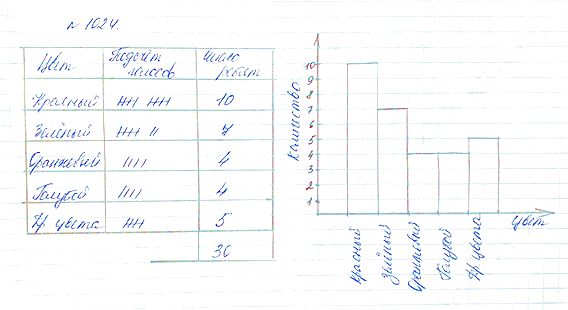 № 1024.
Цвет Подсчёт голосов Число ребят
Красный 10
Зелёный 7
Оранжевый 4
Голубой 4
Др цвета 5
30
Количество
10
8
7
6
5
4
3
2
1
Цвет
Красный
Зелёный
Оранжевый
Голубой
Др цвета